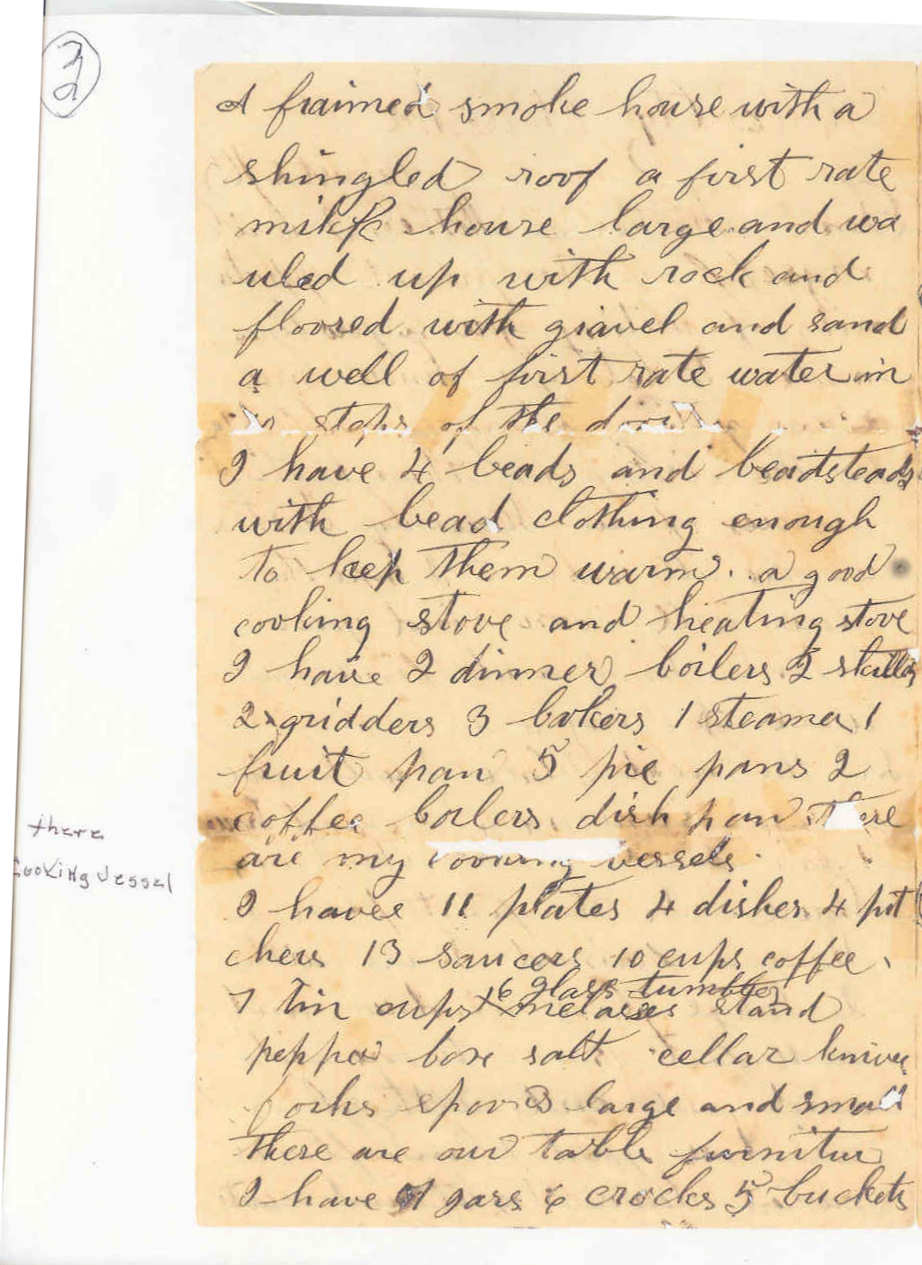 3
2
A fraimed smoke house with a
shingled roof a first rate
milk house large and wa
uled up with rock and
floored with gravel and sand
a well of first rate water in
steps of the door
I have 4 beads and beadsteads
with bead clothing enough
to keep them warm. a good
cooking stove and heating stove
I have 2 dinner boilers 2
2 gridders 3 bakers 1 steamer 1
fruit pan 5 pie pans 2
coffee boilers dish pan there
are my cooking vessels.
there
Cooking Vessel
I havee 11 plates 4 dishes 4 pit
chers 13 saucers 10 cups coffee
6 glass tumbler
7 tin cups melases stand
pepper box salt cellar knives
forks spoons large and small
these are our table furnitur
I have gars 6 crocks 5 buckets